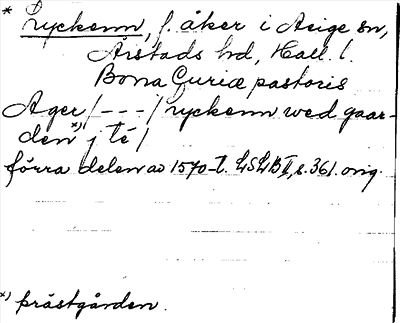 * Ryckenn, f. åker i Asige sn,
Årstads hd, Hall. l.
Bona Curiæ pastoris
Ager /---/ ryckenn wed gaar-
den *) j té /
förra delen av 1570-t. LSLB II, s. 361. orig.
*) prästgården.